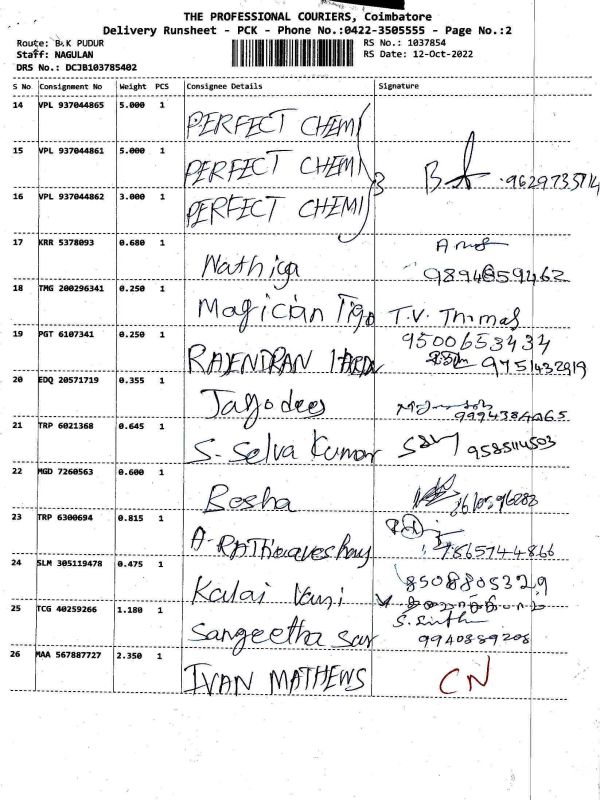 THE PROFESSIONAL COURIERS, Coimbatore
Delivery Runsheet - PCK - Phone No.:0422-3505555 - Page No.:2
Route: B.K PUDUR
RS No.: 1037854
Staff: NAGULAN
RS Date: 12-Oct-2022
DRS No.: DCJB103785402
S No Consignment No Weight PCS Consignee Details Signature
14 VPL 937044865 5.000 1 PERFECT CHEMI
15 VPL 937044861 5.000 1 PERFECT CHEMI 9629735714
16 VPL 937044862 3.000 1 PERFECT CHEMI
17 KRR 5378093 0.680 1 Nathiga
9894859462
18 TMG 200296341 0.250 1 Magician Tigo T.V. Thomas
9500653434
19 PGT 6107341 0.250 1 RAJENDRAN HARDW
9751432919
20 EDQ 20571719 0.355 1 Jagodees
21 TRP 6021368 0.645 1 S. Selva Kumar
9585114503
22 MGD 7260563 0.600 1 Besha
23 TRP 6300694 0.815 1
7865744866
24 SLM 305119478 0.475 1 Kalai Vani 8508805329
25 TCG 40259266 1.180 1 Sangeetha Sar
9940889208
26 MAA 567887727 2.350 1 IVAN MATHEWS CN